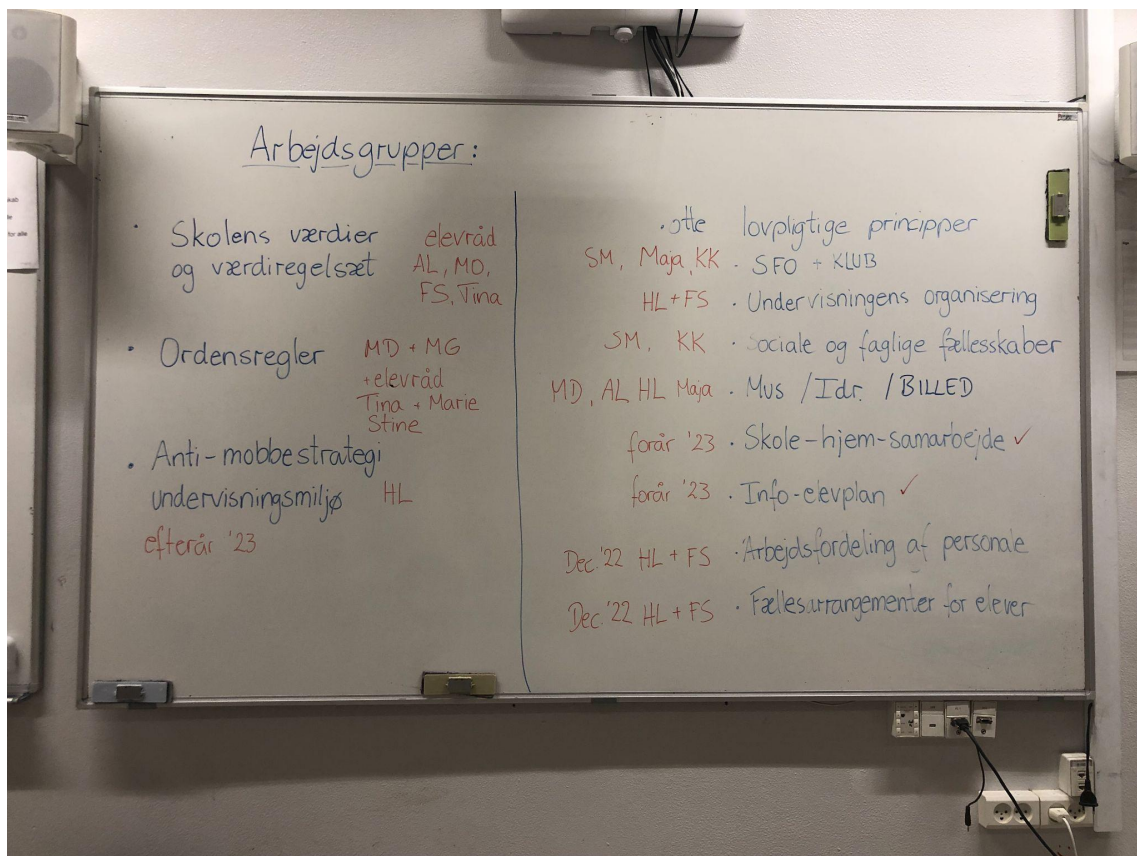 Arbejdsgrupper:
• Skolens værdier elevråd
og værdiregelsæt AL, MD,
FS, Tina
• Ordensregler MD + MG
+elevråd
Tina + Marie
Stine
• Anti-mobbestrategi
undervisningsmiljø HL
efterår '23
• otte lovpligtige principper
SM, Maja, KK • SFO + KLUB
HL+FS • Undervisningens organisering
SM, KK • Sociale og faglige fællesskaber
MD, AL HL Maja • Mus / Idr. / BILLED
forår '23 • Skole-hjem-samarbejde ✓
forår '23 • Info-elevplan ✓
Dec. '22 HL + FS • Arbejdsfordeling af personale
Dec. '22 HL + FS • Fællesarrangementer for elever
for alle